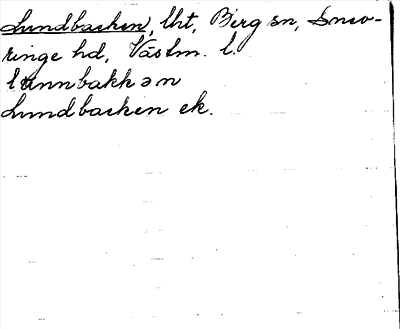 Lundbacken, lht, Berg sn, Snev-
ringe hd, Västm. l.
lunnbakkən
Lundbacken ek.